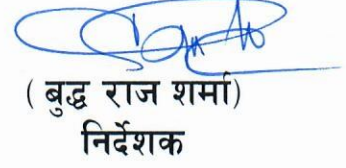 ( बुद्ध राज शर्मा)
निर्देशक